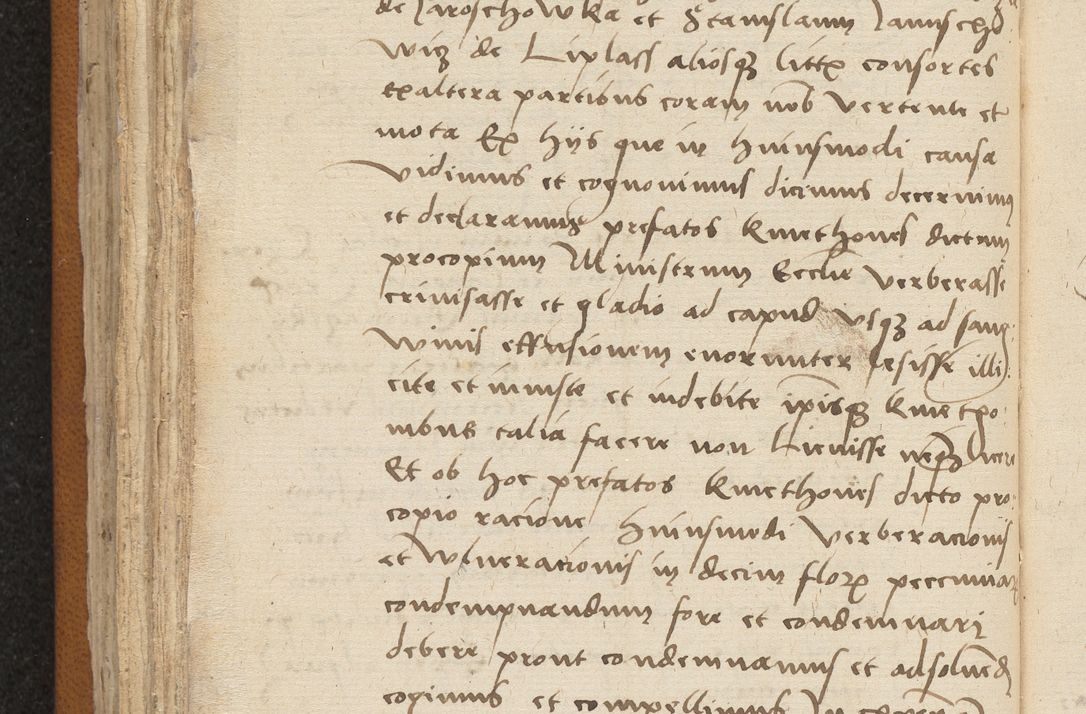 de Jaroschowka et Stanislaum Janischo
wicz de Liplass aliosqz littz consortes
exaltera partibus coram nob vertente et
mota Ex hijs que in huiusmodi causa
vidimus et cognovimus dicimus decernimus
et declaramus prefatos kmethones dictum
procopium Ministrum Ecclie verberasse
crinisasse et gladio ad capud usqz ad sang
winis effusionem enormiter lesisse illi
cite et iniuste et indebite ipisqz kmetho
nibus talia facere non licuisse neqz licere
Et ob hoc prefatos kmethones dicto pro
copio racione huiusmodi verberacionis
et wlneracionis in decim florz peccuniarz
condempnandum fore et condemnari
debere prout condemnamus et adsolvend
cogimus et compellimus In